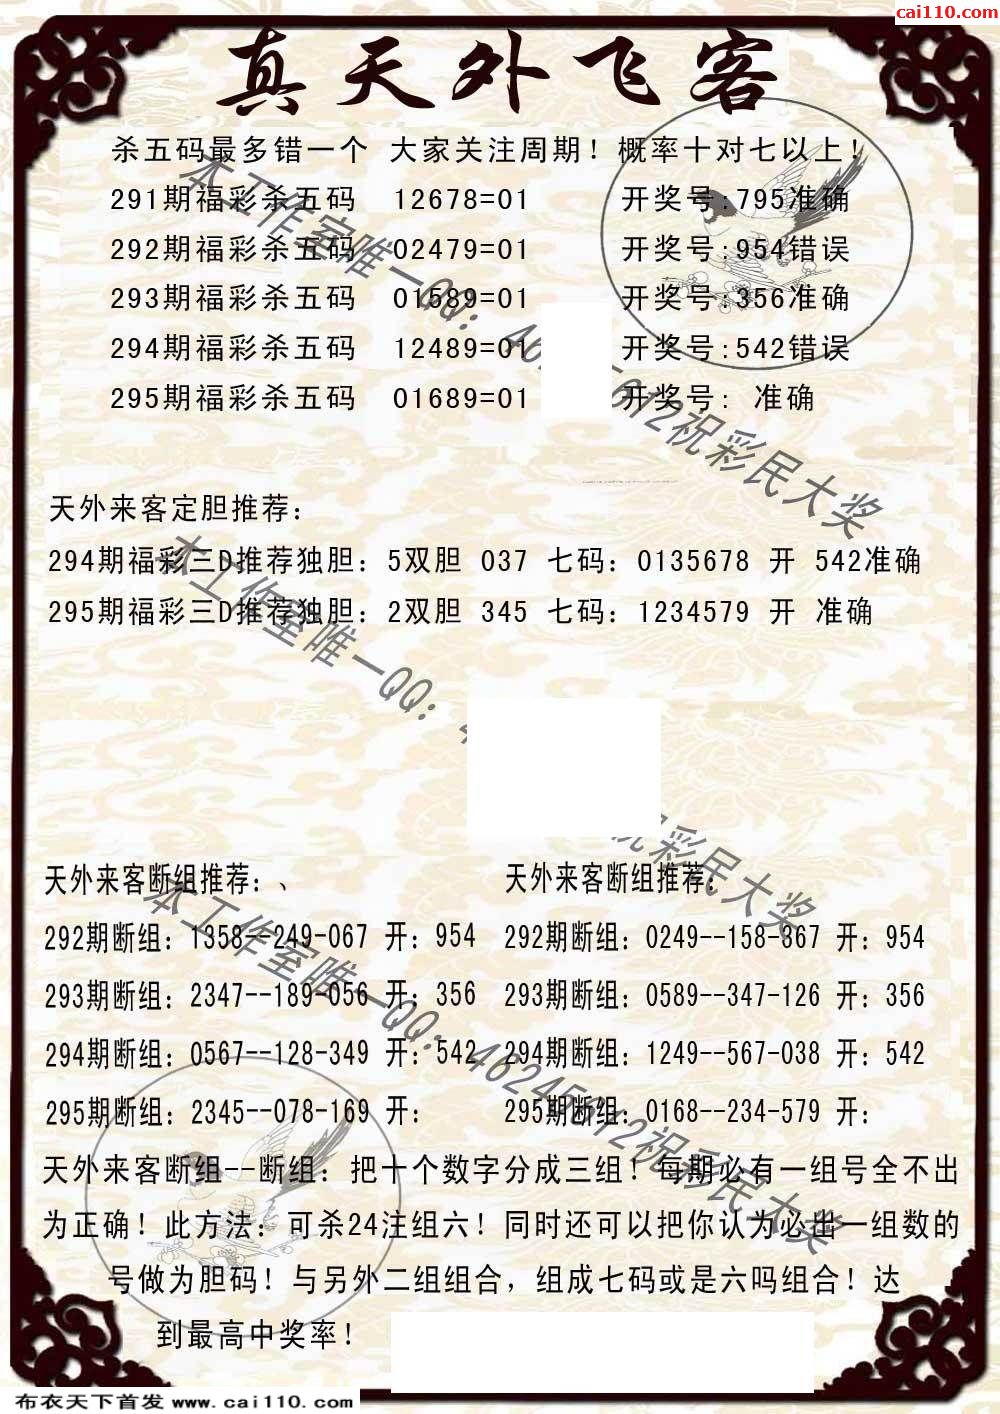 cai110.com
真天外飞客
杀五码最多错一个 大家关注周期！概率十对七以上！
291期福彩杀五码 12678=01 开奖号:795准确
292期福彩杀五码 02479=01 开奖号:954错误
293期福彩杀五码 01589=01 开奖号:356准确
294期福彩杀五码 12489=01 开奖号:542错误
295期福彩杀五码 01689=01 开奖号: 准确
本工作室唯一QQ：祝彩民大奖
天外来客定胆推荐：
294期福彩三D推荐独胆：5双胆 037 七码：0135678 开 542准确
295期福彩三D推荐独胆：2双胆 345 七码：1234579 开 准确
本工作室唯一QQ：祝彩民大奖
天外来客断组推荐：、 天外来客断组推荐：
292期断组：1358--249-067 开：954 292期断组：0249--158-367 开：954
293期断组：2347--189-056 开：356 293期断组：0589--347-126 开：356
294期断组：0567--128-349 开：542 294期断组：1249--567-038 开：542
295期断组：2345--078-169 开： 295期断组：0168--234-579 开：
本工作室唯一QQ：46245612祝彩民大奖
天外来客断组--断组：把十个数字分成三组！每期必有一组号全不出
为正确！此方法：可杀24注组六！同时还可以把你认为必出一组数的
号做为胆码！与另外二组组合，组成七码或是六吗组合！达
到最高中奖率！
布衣天下首发 www.cai110.com